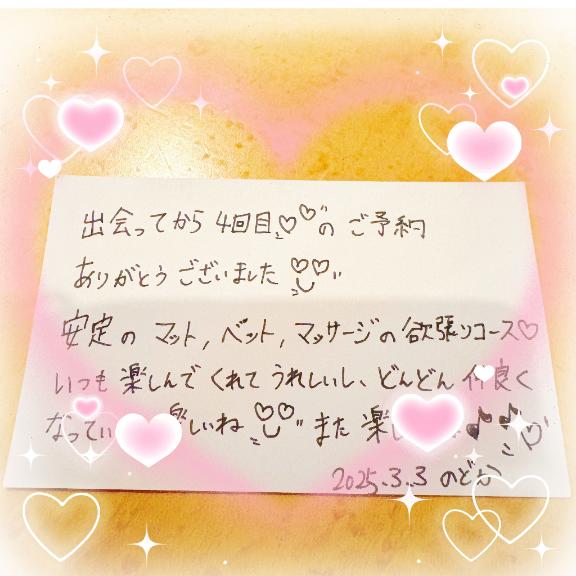 出会ってから 4回目♡♡の ご予約
ありがとう ございました
安定の マット, ベット, マッサージの 欲張りコース♡
いつも 楽しんで くれて うれしいし、どんどん 仲良く
なってい しいね また 楽し
2025.3.3 のどか